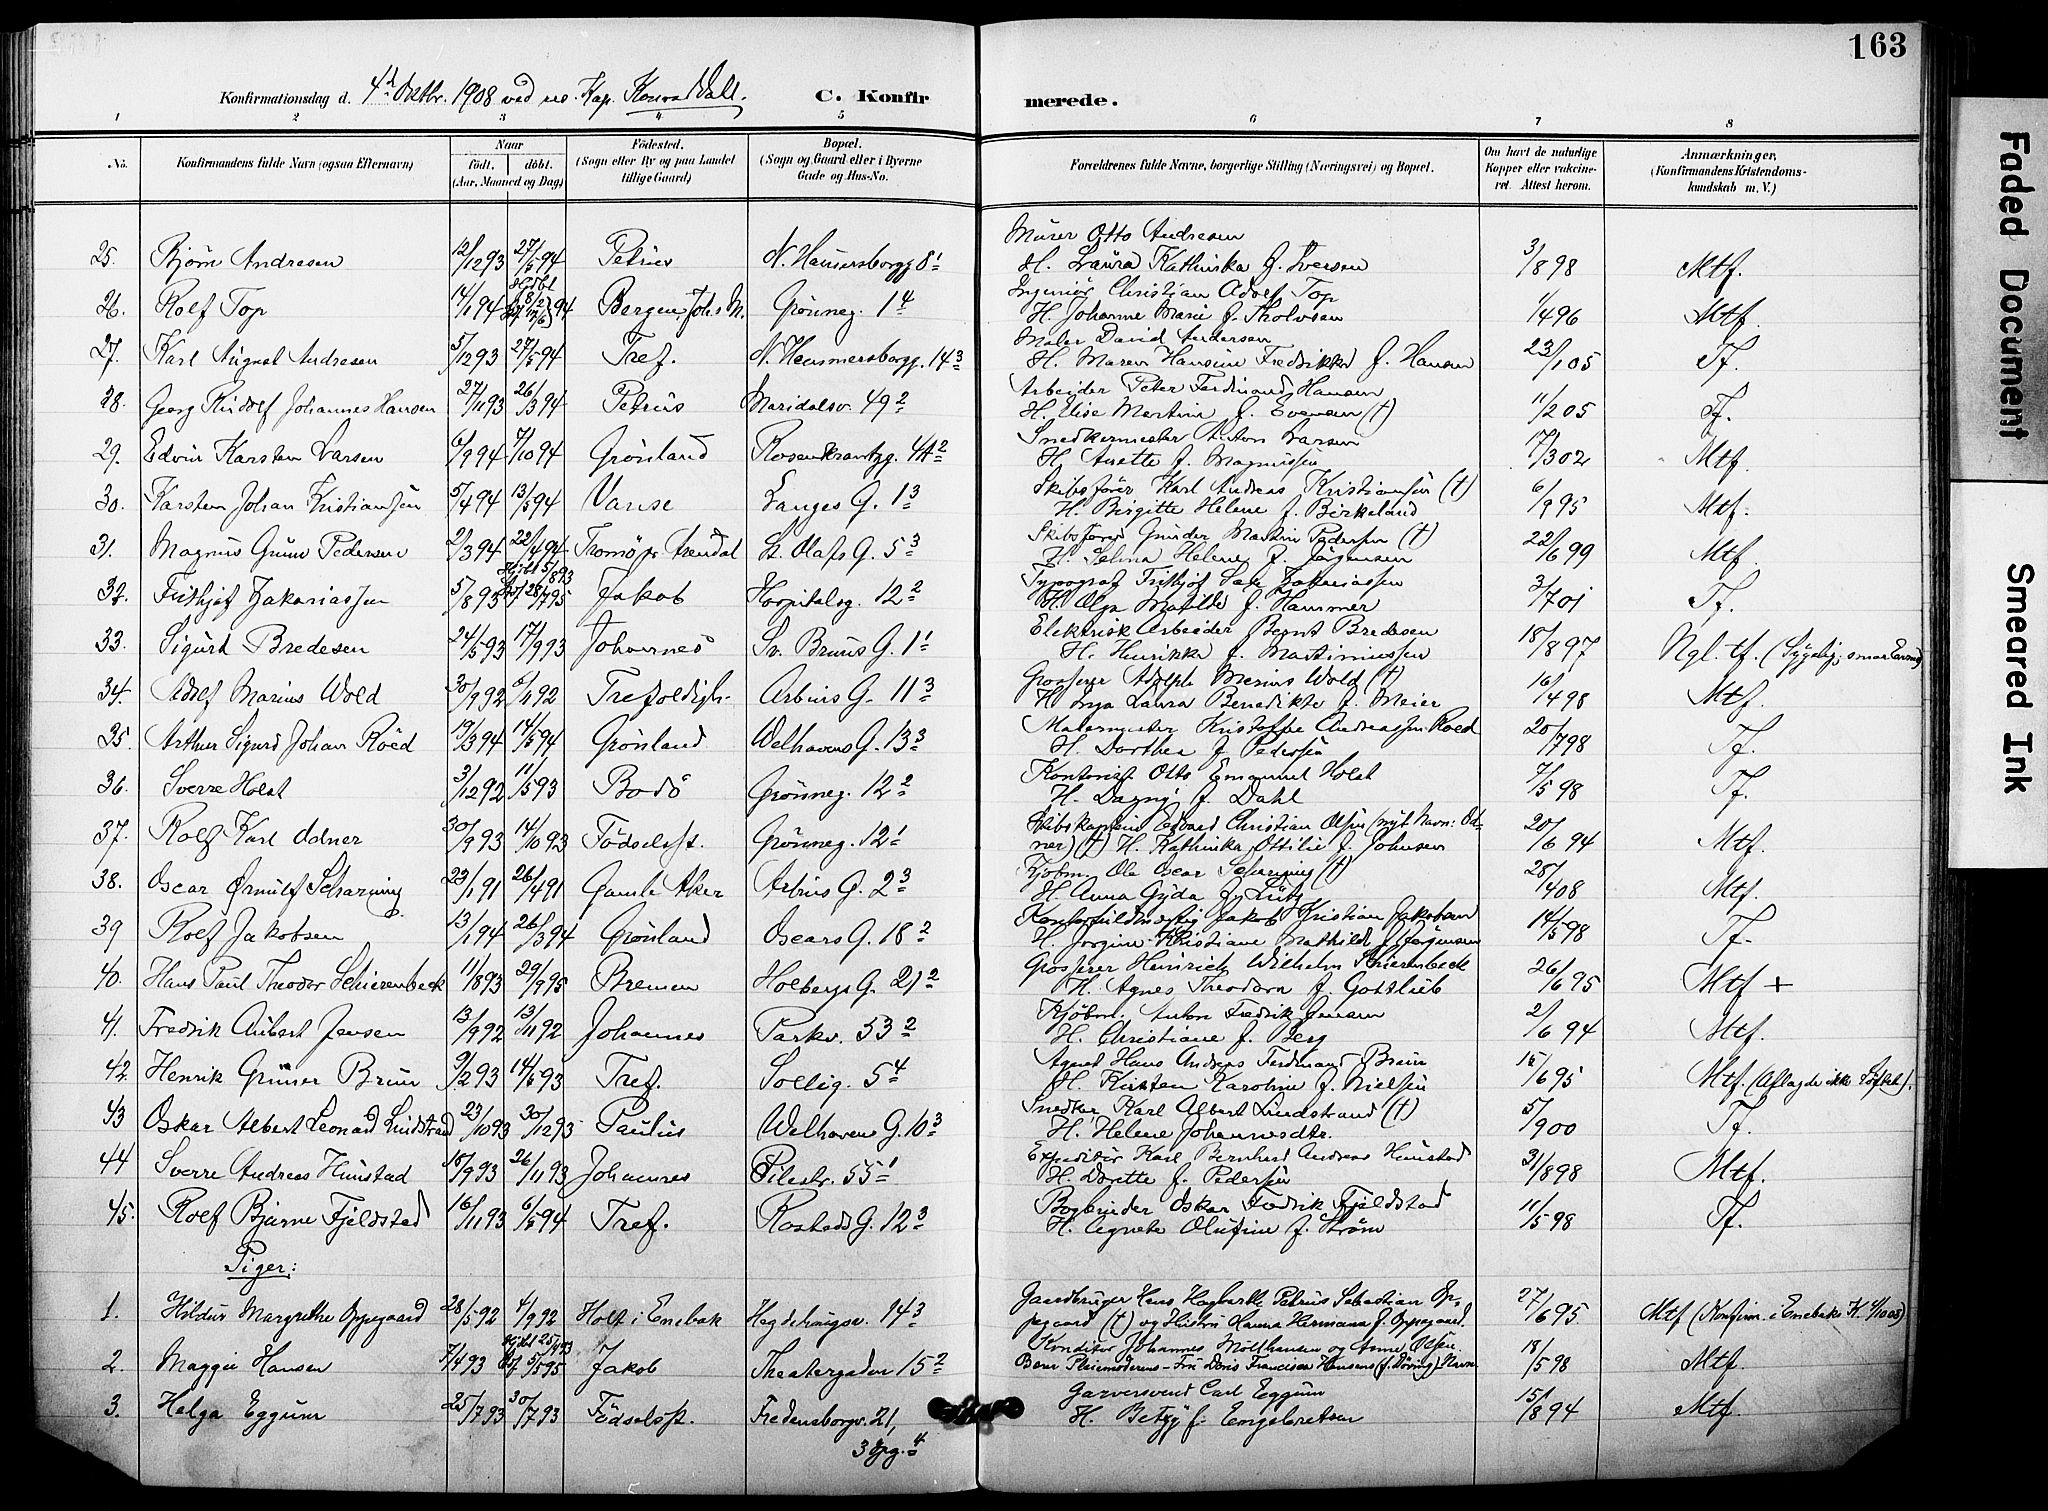 163
Konfirmationsdag d. 4de Oktbr. 1908 ved res. Kap. Konrad Dall. C. Konfirmerede.
1 2 3 4 5 6 7 8
No. Konfirmandens fulde Navn (ogsaa Efternavn) Naar födt. döbt. (Aar, Maaned og Dag) Födested. (Sogn eller By og paa Landet tillige Gaard) Bopæl. (Sogn og Gaard eller i Byerne Gade og Hus-No. Forældrenes fulde Navne, borgerlige Stilling (Næringsvei) og Bopæl. Om havt de naturlige Kopper eller vakcineret. Attest herom. Anmærkninger, (Konfirmandens Kristendomskundskab m. V.)
25. Bjørn Andresen 12/12 93 27/5 94 Petrus N. Hammersborgg 8 1 Murer Otto Andresen H. Laura Kathinka f. Iversen 3/8 98 Mtf.
26. Rolf Top 14/1 94 Bergen, Johs K. Grönneg. 1 4 Ingeniör Christian Adolf Top H. Johanne Marie f. 1/4 96 Mtf.
27. Karl August Andresen 5/12 93 27/5 94 Tref. N. Hammersborgg. 14 3 Maler David Andersen H. Maren Hansine Fredrikke f. Hansen 23/1 05 Tf.
28. Georg Rudolf Johannes Hansen 27/11 93 26/3 94 Petrus Maridalsv. 49 2 Arbeider Peter Ferdinand Hansen H. Elise Martine f. Evensen (†) 11/2 05 Tf.
29. Edvin Karsten Larsen 6/9 94 7/10 94 Grönland Rosenkrantzg. 44 2 Snedkermester Anton Larsen H. Anette f. Magnussen 17/3 02 Mtf.
30. Karsten Johan Kristiansen 5/4 94 13/5 94 Vanse Langes G. 1 3 Skibsförer Karl Andreas Kristiansen (†) H. Birgitte Helene f. Birkeland 6/9 95 Mtf.
31. Magnus Gunn Pedersen 2/3 94 22/4 94 Tromö pr Arendal St. Olafs G. 5 3 Skibsförer Gunder Martin Pedersen (†) H. Selma Helene f. Jörgensen 22/6 99 Mtf.
32. Frithjof Zakariassen 5/8 93 Hjdbt 5/8 93 28/7 95 Jakob Hospitalsg. 12 2 Typograf Frithjof Zakariassen H. Olga Matilde f. Hammer 3/7 01 Tf.
33. Sigurd Bredesen 24/5 93 17/9 93 Johannes Sv. Bruns G. 1 1 Elektrisk Arbeider Bernt Bredesen H. Henrikke f. Martiniussen 18/8 97 Ngl. tf.
34. Adolf Marius Wold 30/9 92 6/11 92 Trefoldigh. Arbins G. 11 3 Grosserer Adolph Marius Wold (†) H. Inga Laura Benedikte f. Meier 16/4 98 Mtf.
35. Arthur Sigurd Johan Röed 19/3 94 14/5 94 Grönland Welhavens G. 13 3 Malermester Kristoffer Andreassen Roed H. Dorthea f. Pedersen 20/7 98 Tf.
36. Sverre Holst 3/12 92 11/5 93 Bodö Grönneg. 12 2 Kontorist Otto Emanuel Holst H. Dagny f. Dahl 7/5 98 Tf.
37. Rolf Karl Odner 30/9 93 14/10 93 Födselsst. Grönneg. 12 1 Skibskaptein Edvard Christian Olsen (nyt Navn: Odner) (†) H. Kathinka Ottilie f. Johnsen 20/6 94 Mtf.
38. Oscar Ørnulf Scharning 23/1 91 26/4 91 Gamle Aker Arbins G. 2 3 Kjöbm. Ole Oscar Scharning (†) H. Anna Gyda f. 28/4 08 Mtf.
39 Rolf Jakobsen 13/1 94 26/3 94 Grönland Oscars G. 18 2 Jakob Kristian Jakobsen H. Jorgine Kristiane Mathilde f. Jörgensen 14/5 98 Tf.
40. Hans Paul Theodor Schierenbeck 11/8 93 29/9 95 Bremen Holbergs G. 21 2 Grosserer Heinrich Wilhelm Schierenbeck H. Agnes Theodora f. Gottlieb 26/6 95 Mtf +
41. Fredrik Aubert Jensen 13/9 92 13/11 92 Johannes Parkv. 53 2 Kjöbm. Anton Fredrik Jensen H. Christiane f. Berg 2/6 94 Mtf.
42. Henrik Grüner Bruun 9/2 93 14/5 93 Tref. Sollig. 5 4 Agent Hans Andreas Ferdinand Bruun H. Kirsten Karoline f. Nielsen 15/6 95 Mtf. (Aflagde ikke Löftet).
43 Oskar Albert Leonard Lindstrand 23/10 93 30/12 93 Paulus Welhavens G. 10 3 Snedker Karl Albert Lindstrand (†) H. Helene Johannesdtr. 5/9 00 Tf.
44 Sverre Andreas Hunstad 15/9 93 26/11 93 Johannes Pilestr. 55 1 Expeditör Karl Bernhard Andreas Hunstad H. Dorette f. Pedersen 31/8 98 Mtf.
45. Rolf Bjarne Fjeldstad 16/11 93 6/5 94 Tref. Rosteds G. 12 3 Bogbinder Oskar Fredrik Fjeldstad H. Agnete Olufine f. Ström 11/5 98 Tf.
Piger:
1. Hildur Margrethe Oppegaard 28/5 92 4/9 92 Holt i Enebak Hegdehaugsv. 14 3 Gaardbruger Hans Hagbarth Petrus Sebastian Oppegaard (†) og Hustru Hanna Hermana f. Oppegaard. 27/6 95 Mtf (Konfirm. i Enebaks K. 4/10 08)
2. Maggie Hansen 7/4 93 Hjdbt 25/4 93 5/5 95 Jakob Theatergaden 15 2 Konditor Johannes Mölthausen og Anne Olsen. Bærer Pleiemoderens – Fru Doris Francisca Hansens (f. Döring) Navn 18/5 98 Mtf.
3. Helga Eggum 25/7 93 30/7 93 Födselsst. Fredensborgv. 21, 3 Opg. 4 Garversvend Carl Eggum H. Betzy f. Engebretsen 15/8 94 Mtf.
Faded Document
Smeared Ink